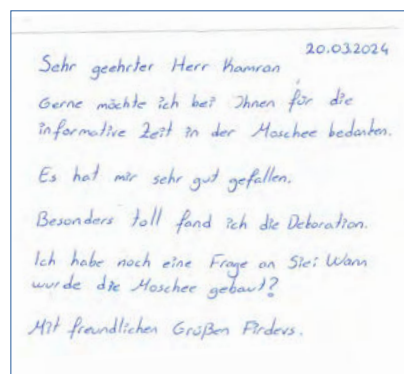 20.03.2024
Sehr geehrter Herr Kamran
Gerne möchte ich bei Ihnen für die
informative Zeit in der Moschee bedanken.
Es hat mir sehr gut gefallen.
Besonders toll fand ich die Dekoration.
Ich habe noch eine Frage an Sie: Wann
wurde die Moschee gebaut?
Mit freundlichen Grüßen Firdevs.